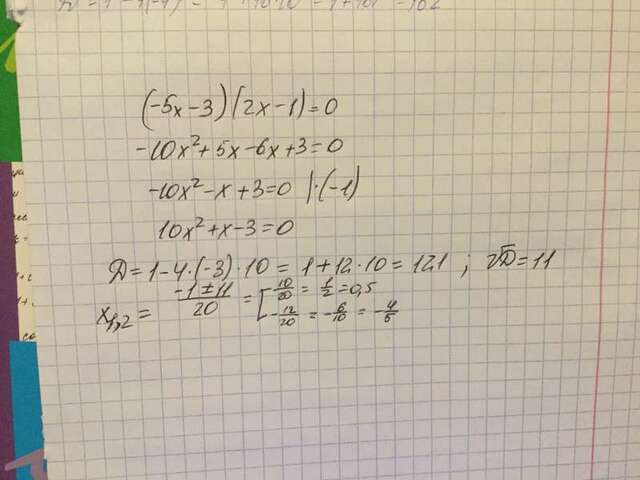 (-5x-3)(2x-1)=0
-10x²+5x-6x+3=0
-10x²-x+3=0 |·(-1)
10x²+x-3=0
D=1-4·(-3)·10=1+12·10=121; √D=11
x₁,₂= (-1±11)/20 = [ 10/20 = 1/2 = 0,5
-12/20 = -6/10 =